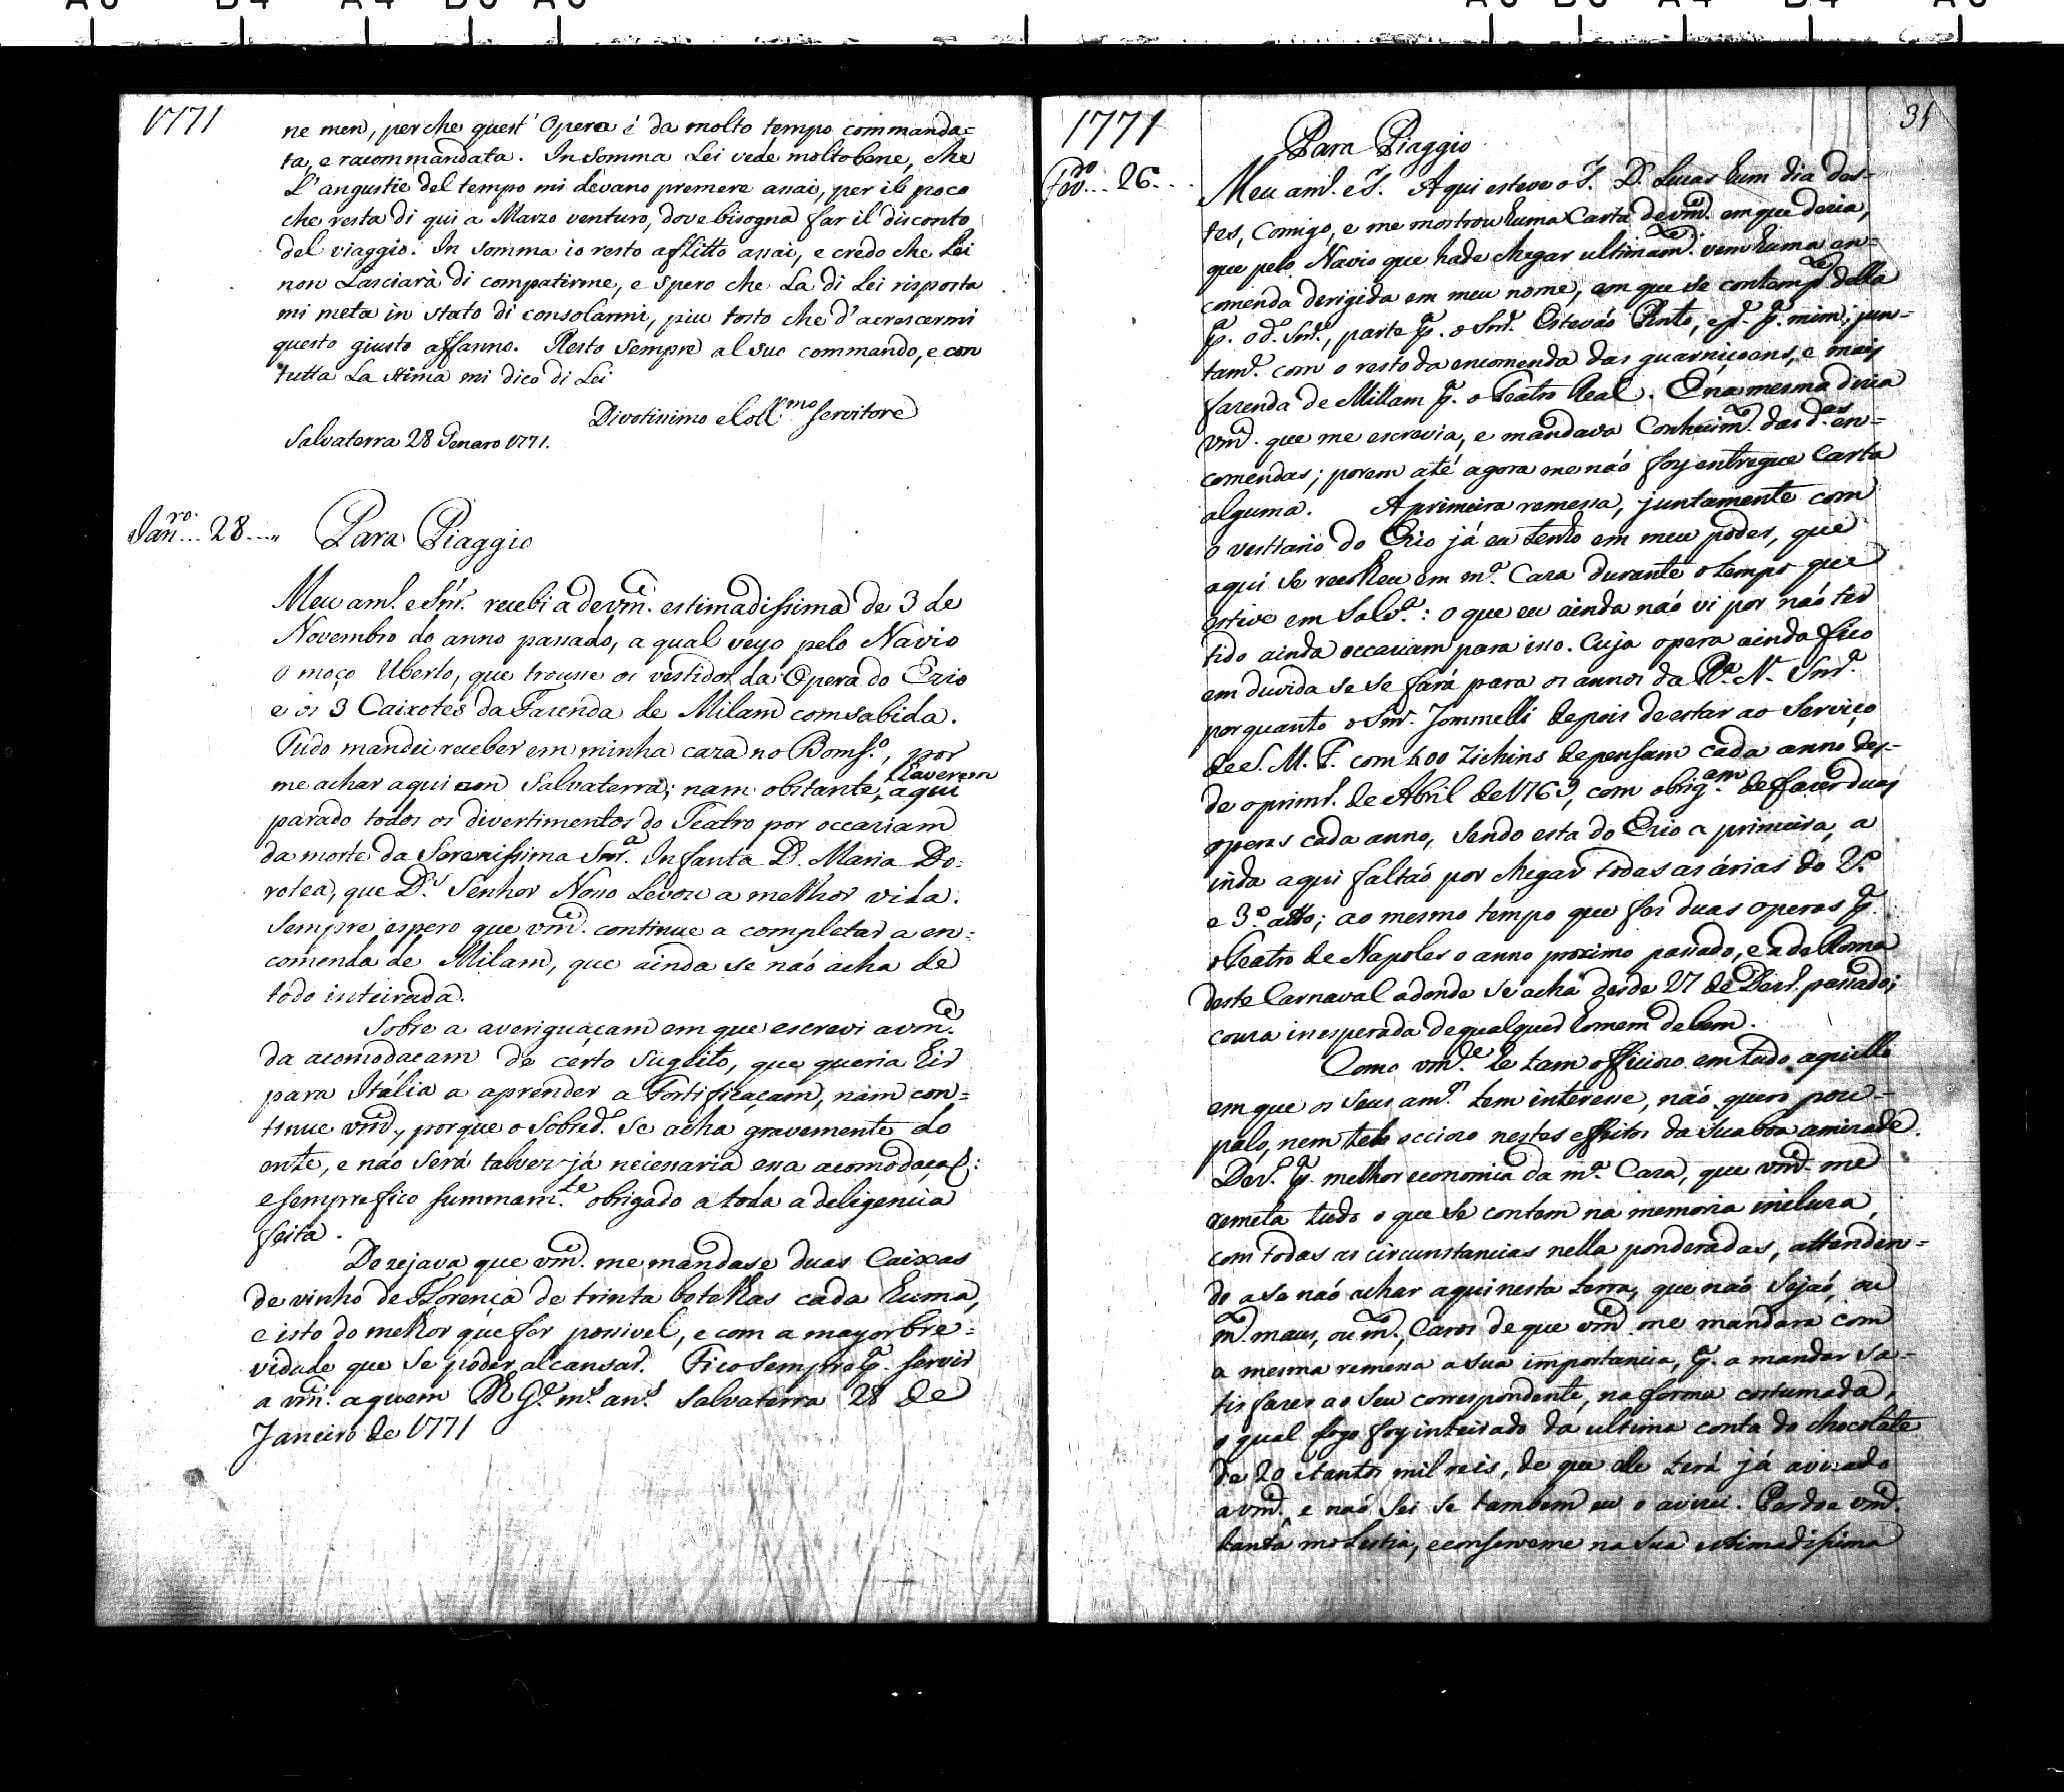 A6 B4 A4 B5 A5 A5 B5 A4 B4 A6
1771
ne men, perche quest' Opera è da molto tempo commanda=
ta, e racommandata. In somma Lei vede molto bene, che
L'angustie del tempo mi devano premere assai, per il poco
che resta di qui a Marzo venturo, dove bisogna far il disconto
del viaggio. In somma io resto afflitto assai, e credo che Lei
non Lasciarà di compatirme, e spero che La di Lei risposta
mi meta in stato di consolarmi, piu tosto che d'acrescermi
questo giusto affanno. Resto sempre al suo commando, e con
tutta La stima mi dico di Lei
Divotissimo e Coll.mo servitore
Salvaterra 28 Genaro 1771.
Jan.ro .. 28 ...
Para Piaggio
Meu am.º e Sñr. recebi a de vm.ce estimadissima de 3 de
Novembro do anno passado, a qual veyo pelo Navio
o moço Uberto, que trouxe os vestidos da Opera do Ezio
e os 3 Caixotes da Fazenda de Milam comsabida.
Tudo mandei receber em minha caza no Boms.º, por
me achar aqui em Salvaterra; nam obstante, haverem
aqui
parado todos os divertimentos do Teatro por occaziam
da morte da Serenissima Snr.a Infanta D. Maria Do=
rotea, que D.s Senhor Nosso Levou a melhor vida.
Sempre espero que vm.ce continue a completar a en=
comenda de Milam, que ainda se naõ acha de
todo inteirada.
Sobre a averiguaçam em que escrevi a vm.ce
da acomodacam de certo sugeito, que queria hir
para Itália a aprender a Fortificaçam, nam con=
tinue vm.ce, porque o Sobred.º se acha gravemente do
ente, e naõ será talvez já necessaria essa acomodaçaõ:
e sempre fico summam.te obrigado a toda a deligencia
feita.
Dezejava que vm.ce me mandase duas Caixas
de vinho de Florença de trinta botelhas cada huma,
e isto do melhor que for possivel, e com a mayor bre=
vidade que se poder alcansar. Fico sempre p.ª servir
a vm.ce a quem D.s G.e m.s an.s Salvaterra 28 de
Janeiro de 1771
1771
31
Fev.ro .. 26 ..
Para Piaggio
Meu am.º e S.r Aqui esteve o S.r D. Lucas hum dia des=
tes, comigo, e me mostrou huma Carta de vm.ce em que dezia,
que pelo Navio que hade chegar ultimam.te vem huma en=
comenda derigida em meu nome, em que se contempla della
p.ª o d.º Snr., parte p.ª o Snr. Estevaõ Pinto, e p.te p.ª mim; jun=
tam.te com o resto da encomenda das guarniçoens, e mais
fazenda de Millam p.ª o Teatro Real. E na mesma dizia
vm.ce que me escrevia, e mandava Conhecim.to das d.as en=
comendas; porem até agora me naõ foy entregue Carta
alguma. A primeira remessa, juntamente com
o vestiario do Ezio já eu tenho em meu poder, que
aqui se recolheu em m.ª Caza durante o tempo que
estive em Salv.ª: o que eu ainda naõ vi por naõ ter
tido ainda occaziam para isso. Cuja opera ainda fico
em duvida se se fará para os annos da R.ª N. Snr.ª
porquanto o Snr. Jommelli depois de estar ao Serviço
de S. M. F. com 400 Zichins de pensam cada anno des=
de o prim.º de Abril de 1769, com obrig.am de fazer duas
operas cada anno, sendo esta do Ezio a primeira, a
inda aqui faltaõ por chegar todas as árias do 2.º
e 3.º atto; ao mesmo tempo que fez duas operas p.ª
o Teatro de Napoles o anno proximo passado, e a de Roma
deste Carnaval adonde se acha desde 27 de Dez.º passado;
couza inesperada de qualquer homem de bem.
Como vm.ce he tam officiozo em tudo aquillo
em que os Seus am.os tem interesse, naõ quero pou=
palo, nem telo occiozo nestes effeitos da sua boa amizade.
Dez.º p.ª melhor economia da m.ª Caza, que vm.ce me
remeta tudo o que se contem na memoria incluza,
com todas as circunstancias nella ponderadas, attenden=
do a se naõ achar aqui nesta terra, que naõ sejaõ, ou
m.to maus, ou m.to Caros de que vm.ce me mandara com
a mesma remessa a sua importancia, p.ª a mandar sa=
tisfazer ao seu correspondente, na forma costumada,
o qual logo foy inteirado da ultima conta do chocolate
de 20 e tantos mil reis, de que elle terá já avizado
a vm.ce e naõ sei se tambem eu o avizei. Perdoe vm.ce
tanta molestia, e conserveme na sua estimadissima